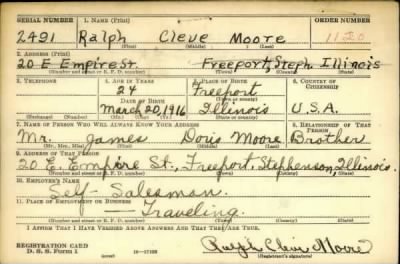 SERIAL NUMBER 1. NAME (Print) ORDER NUMBER
2491 Ralph Cleve Moore 1120
(First) (Middle) (Last)
2. ADDRESS (Print)
20 E Empire St. Freeport, Steph. Illinois
(Number and street or R. F. D. number) (Town) (County) (State)
3. TELEPHONE 4. AGE IN YEARS 5. PLACE OF BIRTH 6. COUNTRY OF CITIZENSHIP
24 Freeport
DATE OF BIRTH (Town or county)
March 20, 1916 Illinois U.S.A.
(Exchange) (Number) (Mo.) (Day) (Yr.) (State or country)
7. NAME OF PERSON WHO WILL ALWAYS KNOW YOUR ADDRESS 8. RELATIONSHIP OF THAT PERSON
Mr. James Doris Moore Brother
(Mr., Mrs., Miss) (First) (Middle) (Last)
9. ADDRESS OF THAT PERSON
20 E. Empire St., Freeport, Stephenson, Illinois.
(Number and street or R. F. D. number) (Town) (County) (State)
10. EMPLOYER'S NAME
Self - Salesman.
11. PLACE OF EMPLOYMENT OR BUSINESS
— Traveling.
(Number and street or R. F. D. number) (Town) (County) (State)
I AFFIRM THAT I HAVE VERIFIED ABOVE ANSWERS AND THAT THEY ARE TRUE.
REGISTRATION CARD
D. S. S. Form 1 (over) 16—17105 Ralph Cleve Moore
(Registrant's signature)